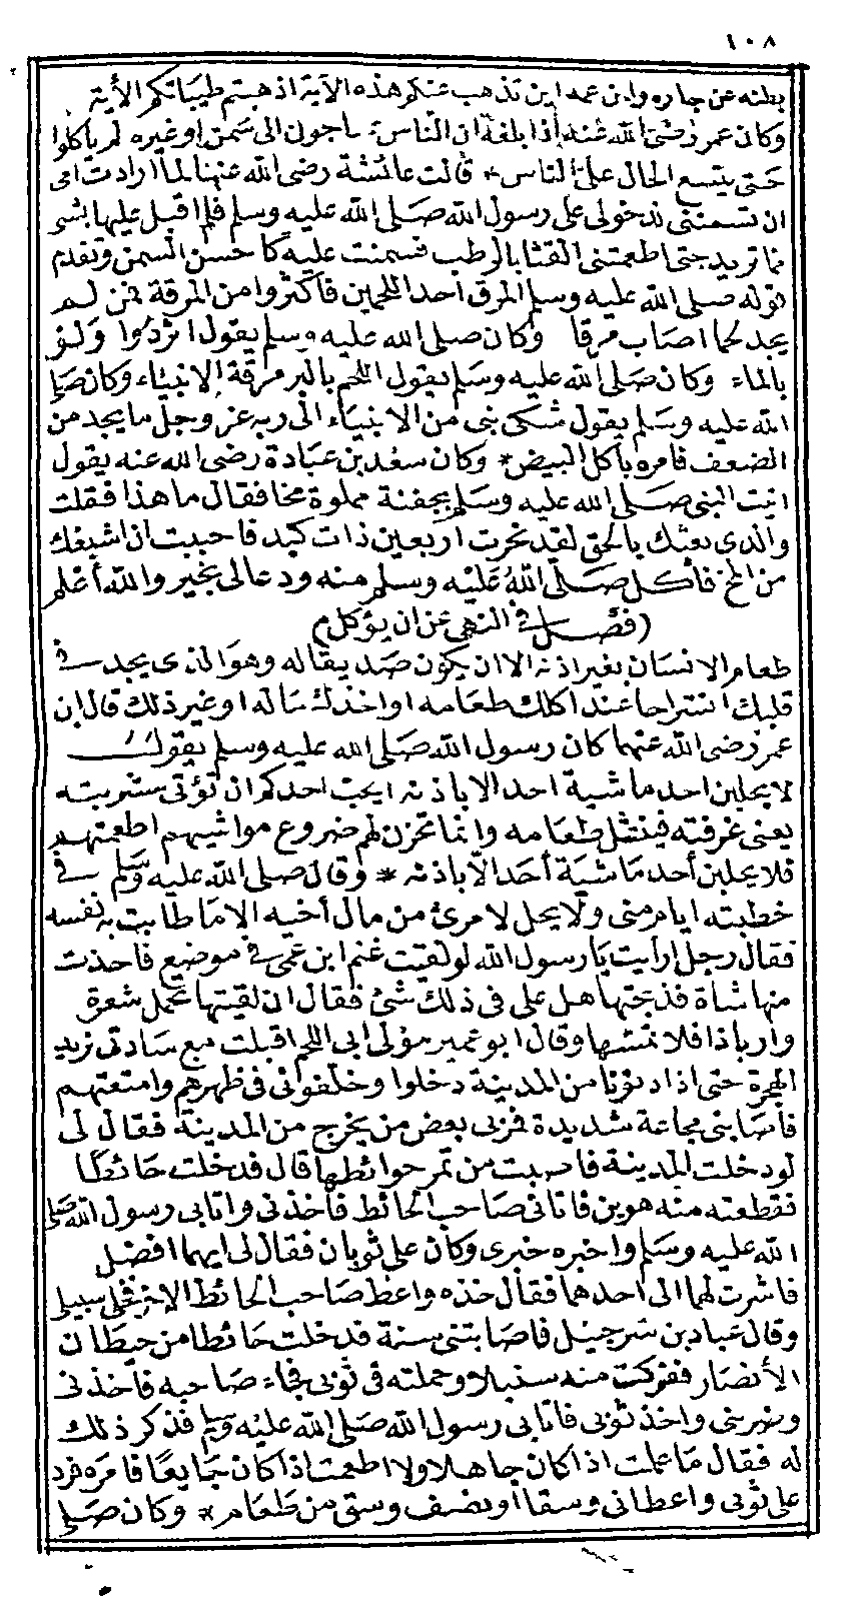 ١٠٨
بطنه عن جاره وابن عمه اين تذهب عنكم هذه الآية اذهبتم طيباتكم الأية
وكان عمر رضى الله عنه اذا بلغه ان الناس ياجون الى سمن او غيره لم ياكلوا
حتى يتسع الحال على الناس * قالت عائشة رضى الله عنها لما ارادت امى
ان تسمننى لدخولى على رسول الله صلى الله عليه وسلم فلم اقبل عليها بشى
مما تريد حتى اطعمتنى القثا بالرطب فسمنت عليه كا حسن السمن وتقدم
قوله صلى الله عليه وسلم المرق احد اللحمين فاكثروا من المرقة فمن لم
يجد لحما اصاب مرقا وكان صلى الله عليه وسلم يقول اثردوا ولو
بالماء وكان صلى الله عليه وسلم يقول اللحم بالبر مرقة الانبياء وكان صلى
الله عليه وسلم يقول شكى نبى من الانبياء الى ربه عز وجل ما يجد من
الضعف فامره باكل البيض * وكان سعد بن عبادة رضى الله عنه يقول
اتيت النبى صلى الله عليه وسلم بجفنة مملوة مخا فقال ما هذا فقلت
والذى بعثك بالحق لقد نحرت اربعين ذات كبد فاحببت ان اشبعك
من المخ فأكل صلى الله عليه وسلم منه ودعا لى بخير والله أعلم
(فصل فى النهى عن ان يؤكل)
طعام الانسان بغير اذنه الا ان يكون صديقا له وهو الذى يجد فى
قلبك انشراحا عند اكلك طعامه او اخذك ماله او غير ذلك قال ابن
عمر رضى الله عنهما كان رسول الله صلى الله عليه وسلم يقول
لا يحلبن احد ماشية احد الا باذنه ايحب احدكم ان تؤتى مشربته
يعنى غرفته فينتثل طعامه وانما تخزن لهم ضروع مواشيهم اطعمتهم
فلا يحلبن أحد ماشية أحد الا باذنه * وقال صلى الله عليه وسلم فى
خطبته ايام منى ولا يحل لامرئ من مال أخيه الا ما طابت به نفسه
فقال رجل ارأيت يا رسول الله لو لقيت غنم ابن عمى فى موضع فاخذت
منها شاة فذبحتها هل على فى ذلك شئ فقال ان لقيتها تحمل شفرة
وازنادا فلا تمسها وقال ابو عمير مولى ابى اللحم اقبلت مع سادتى نريد
الهجرة حتى اذا دنونا من المدينة دخلوا وخلفونى فى ظهرهم وامتعتهم
فأصابنى مجاعة شديدة فمر بى بعض من يخرج من المدينة فقال لى
لو دخلت المدينة فاصبت من تمر حوائطها قال فدخلت حائطا
فقطعت منه قنوين فاتانى صاحب الحائط فأخذنى واتا بى رسول الله صلى
الله عليه وسلم واخبره خبرى وكان على ثوبان فقال لى ايهما افضل
فاشرت لهما الى احدهما فقال خذه واعط صاحب الحائط الاخر فخلى سبيلى
وقال عباد بن شرحبيل فاصابتنى سنة فدخلت حائطا من حيطان
الأنصار ففركت منه سنبلا وحملته فى ثوبى فجاء صاحبه فاخذنى
وضربنى واخذ ثوبى فاتا بى رسول الله صلى الله عليه وسلم فذكر ذلك
له فقال ما علمت اذا كان جاهلا ولا اطعمت اذا كان جايعا فامره فرد
على ثوبى واعطانى وسقا او نصف وسق من طعام * وكان صلى